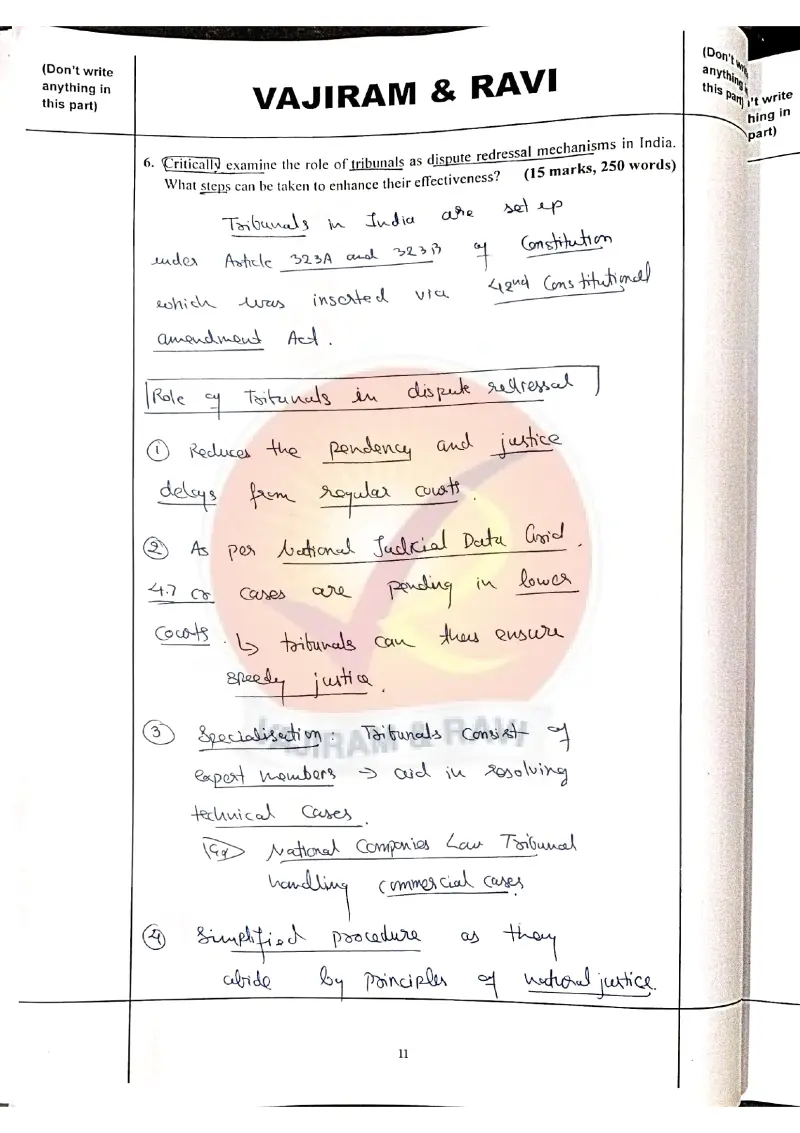 (Don't write
anything in
this part)
VAJIRAM & RAVI
(Don't
anything
this part)
't write
hing in
part)
6. Critically examine the role of tribunals as dispute redressal mechanisms in India.
What steps can be taken to enhance their effectiveness? (15 marks, 250 words)
Tribunals in India are set up
under Article 323A and 323B of Constitution
which was inserted via 42nd Constitutional
amendment Act.
Role of Tribunals in dispute redressal
① Reduces the pendency and justice
delays from regular courts.
② As per National Judicial Data Grid.
4.7 cr cases are pending in lower
Courts. ↳ tribunals can thus ensure
speedy justice.
③ Specialisation: Tribunals consist of
expert members → aid in resolving
technical cases.
Eg National Companies Law Tribunal
handling commercial cases
④ Simplified procedure as they
abide by principles of natural justice.
VAJIRAM & RAVI
11